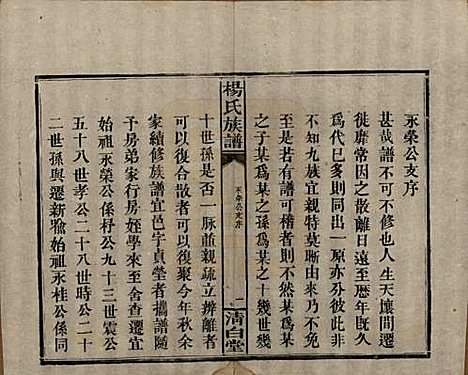 永榮公支序
甚哉譜不可不修也人生天壤間遷
徙靡常因之散離者至歷年既久
爲代已多則同出一原亦分彼此非
不知九族宜親特莫晰由來乃不免
至是若有譜可稽者則某爲某
之子某爲某之孫爲某之十幾世某
楊氏族譜
永榮公支序
一
清白堂
十世孫是否一脉並親疏立辨離者
可以復合散者可以復聚今年秋余
家續修族譜宜邑字貞瑩者攜譜隨
予房弟家行房姪學來至舍查遷宜
始祖永榮公係杍公九十三世震公
五十八世孝公二十八世時公二十
二世孫與遷新豫始祖永桂公係同